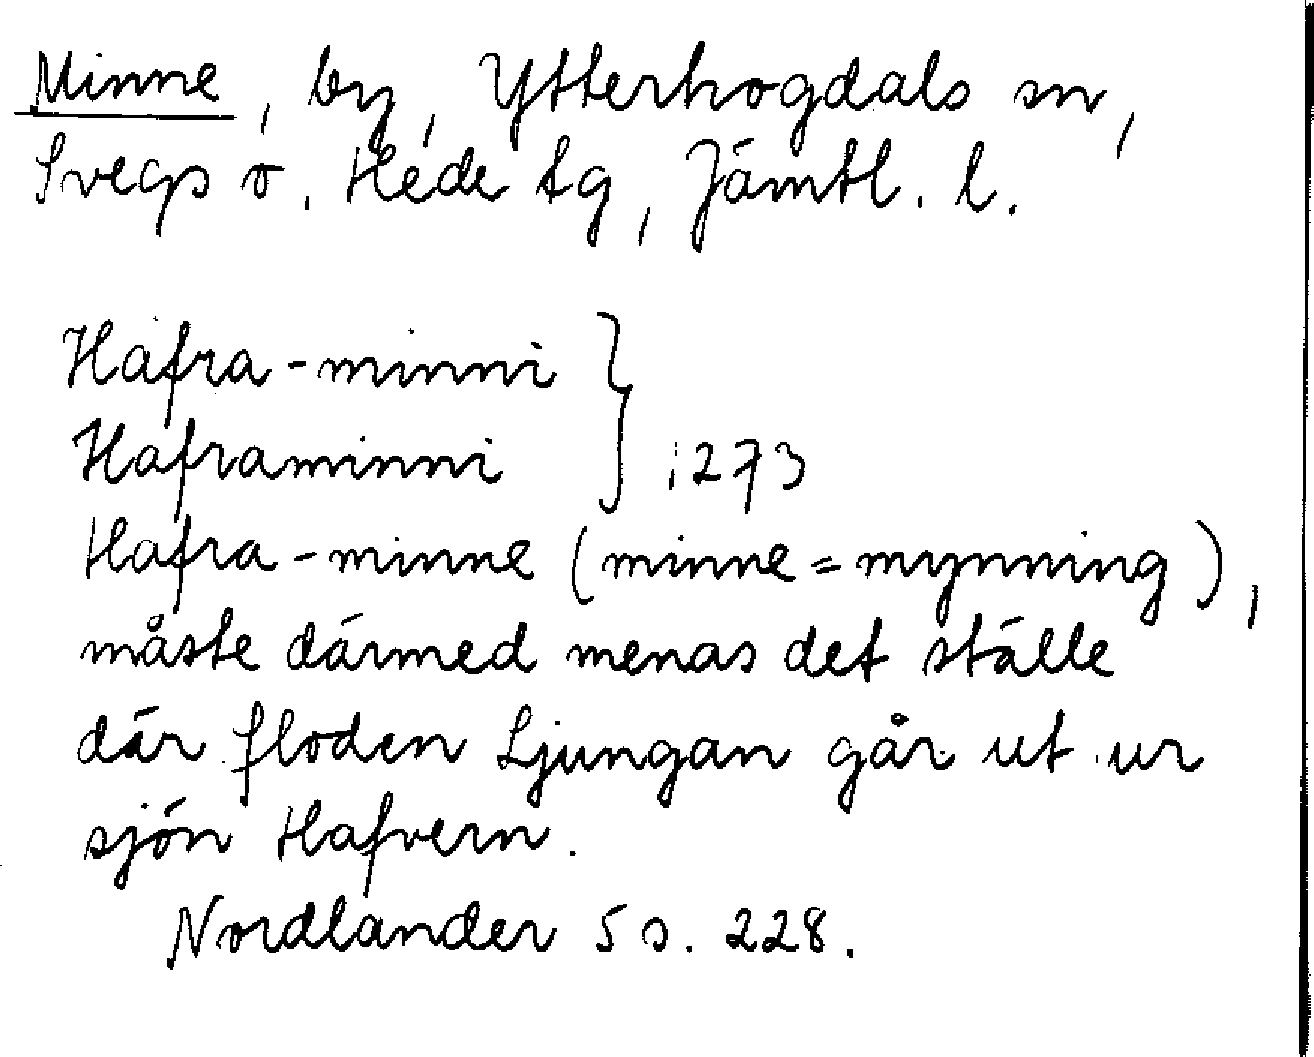 Minne, by, Ytterhogdals sn,
Svegs o. Hede tg, Jämtl. l.
Hafra-minni
Haframinni } 1273
Hafra-minne (minne=mynning),
måste därmed menas det ställe
där floden Ljungan går ut ur
sjön Hafvern.
Nordlander 5 s. 228.